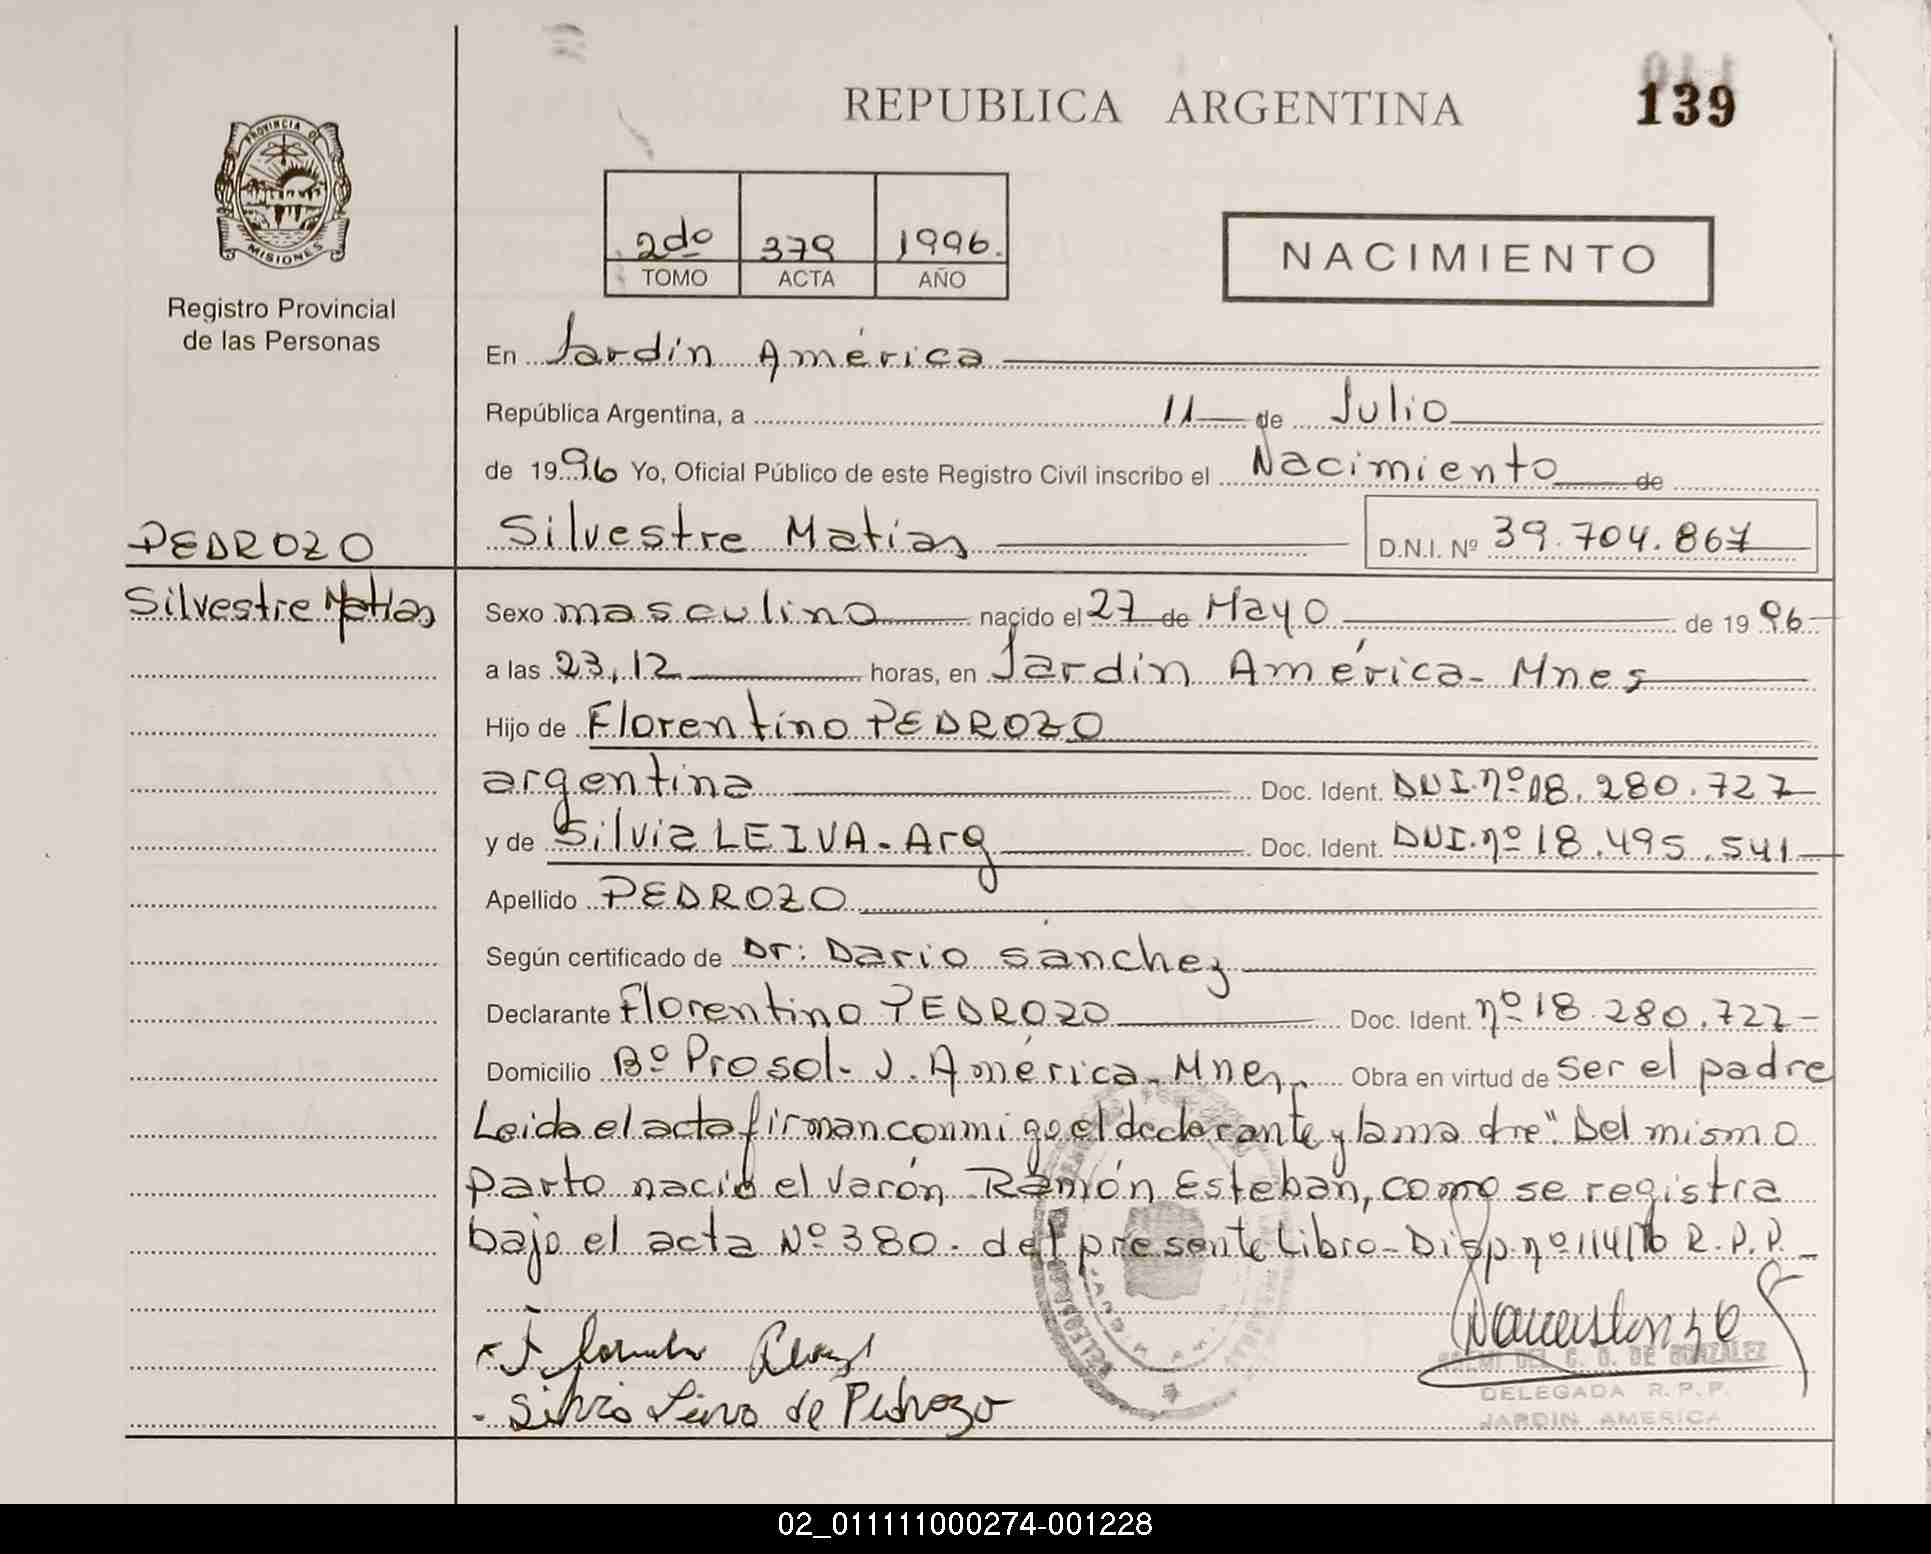 REPUBLICA ARGENTINA
139
PROVINCIA DE
MISIONES
Registro Provincial
de las Personas
2do 379 1996.
TOMO ACTA AÑO
NACIMIENTO
En Jardín América
República Argentina, a 11 de Julio
de 1996 Yo, Oficial Público de este Registro Civil inscribo el Nacimiento de
Silvestre Matias D.N.I. Nº 39.704.867
PEDROZO
Silvestre Matias
Sexo masculino nacido el 27 de Mayo de 1996
a las 23,12 horas, en Jardín América - Mnes
Hijo de Florentino PEDROZO
argentina Doc. Ident. DNI. nº 18.280.727
y de Silvia LEIVA - Arg Doc. Ident. DNI. nº 18.495.541
Apellido PEDROZO
Según certificado de Dr: Dario Sánchez
Declarante Florentino PEDROZO Doc. Ident. nº 18.280.727
Domicilio Bº Prosol - J. América - Mnes Obra en virtud de ser el padre
Leida el acta firman conmigo el declarante y la madre". Del mismo
parto nació el varón Ramón Esteban, como se registra
bajo el acta Nº 380. del presente Libro - Disp. nº 114/76 R.P.P.
Silvia Leiva de Pedrozo
DEL C. G. DE GONZALEZ
DELEGADA R.P.P.
JARDIN AMERICA
02_011111000274-001228